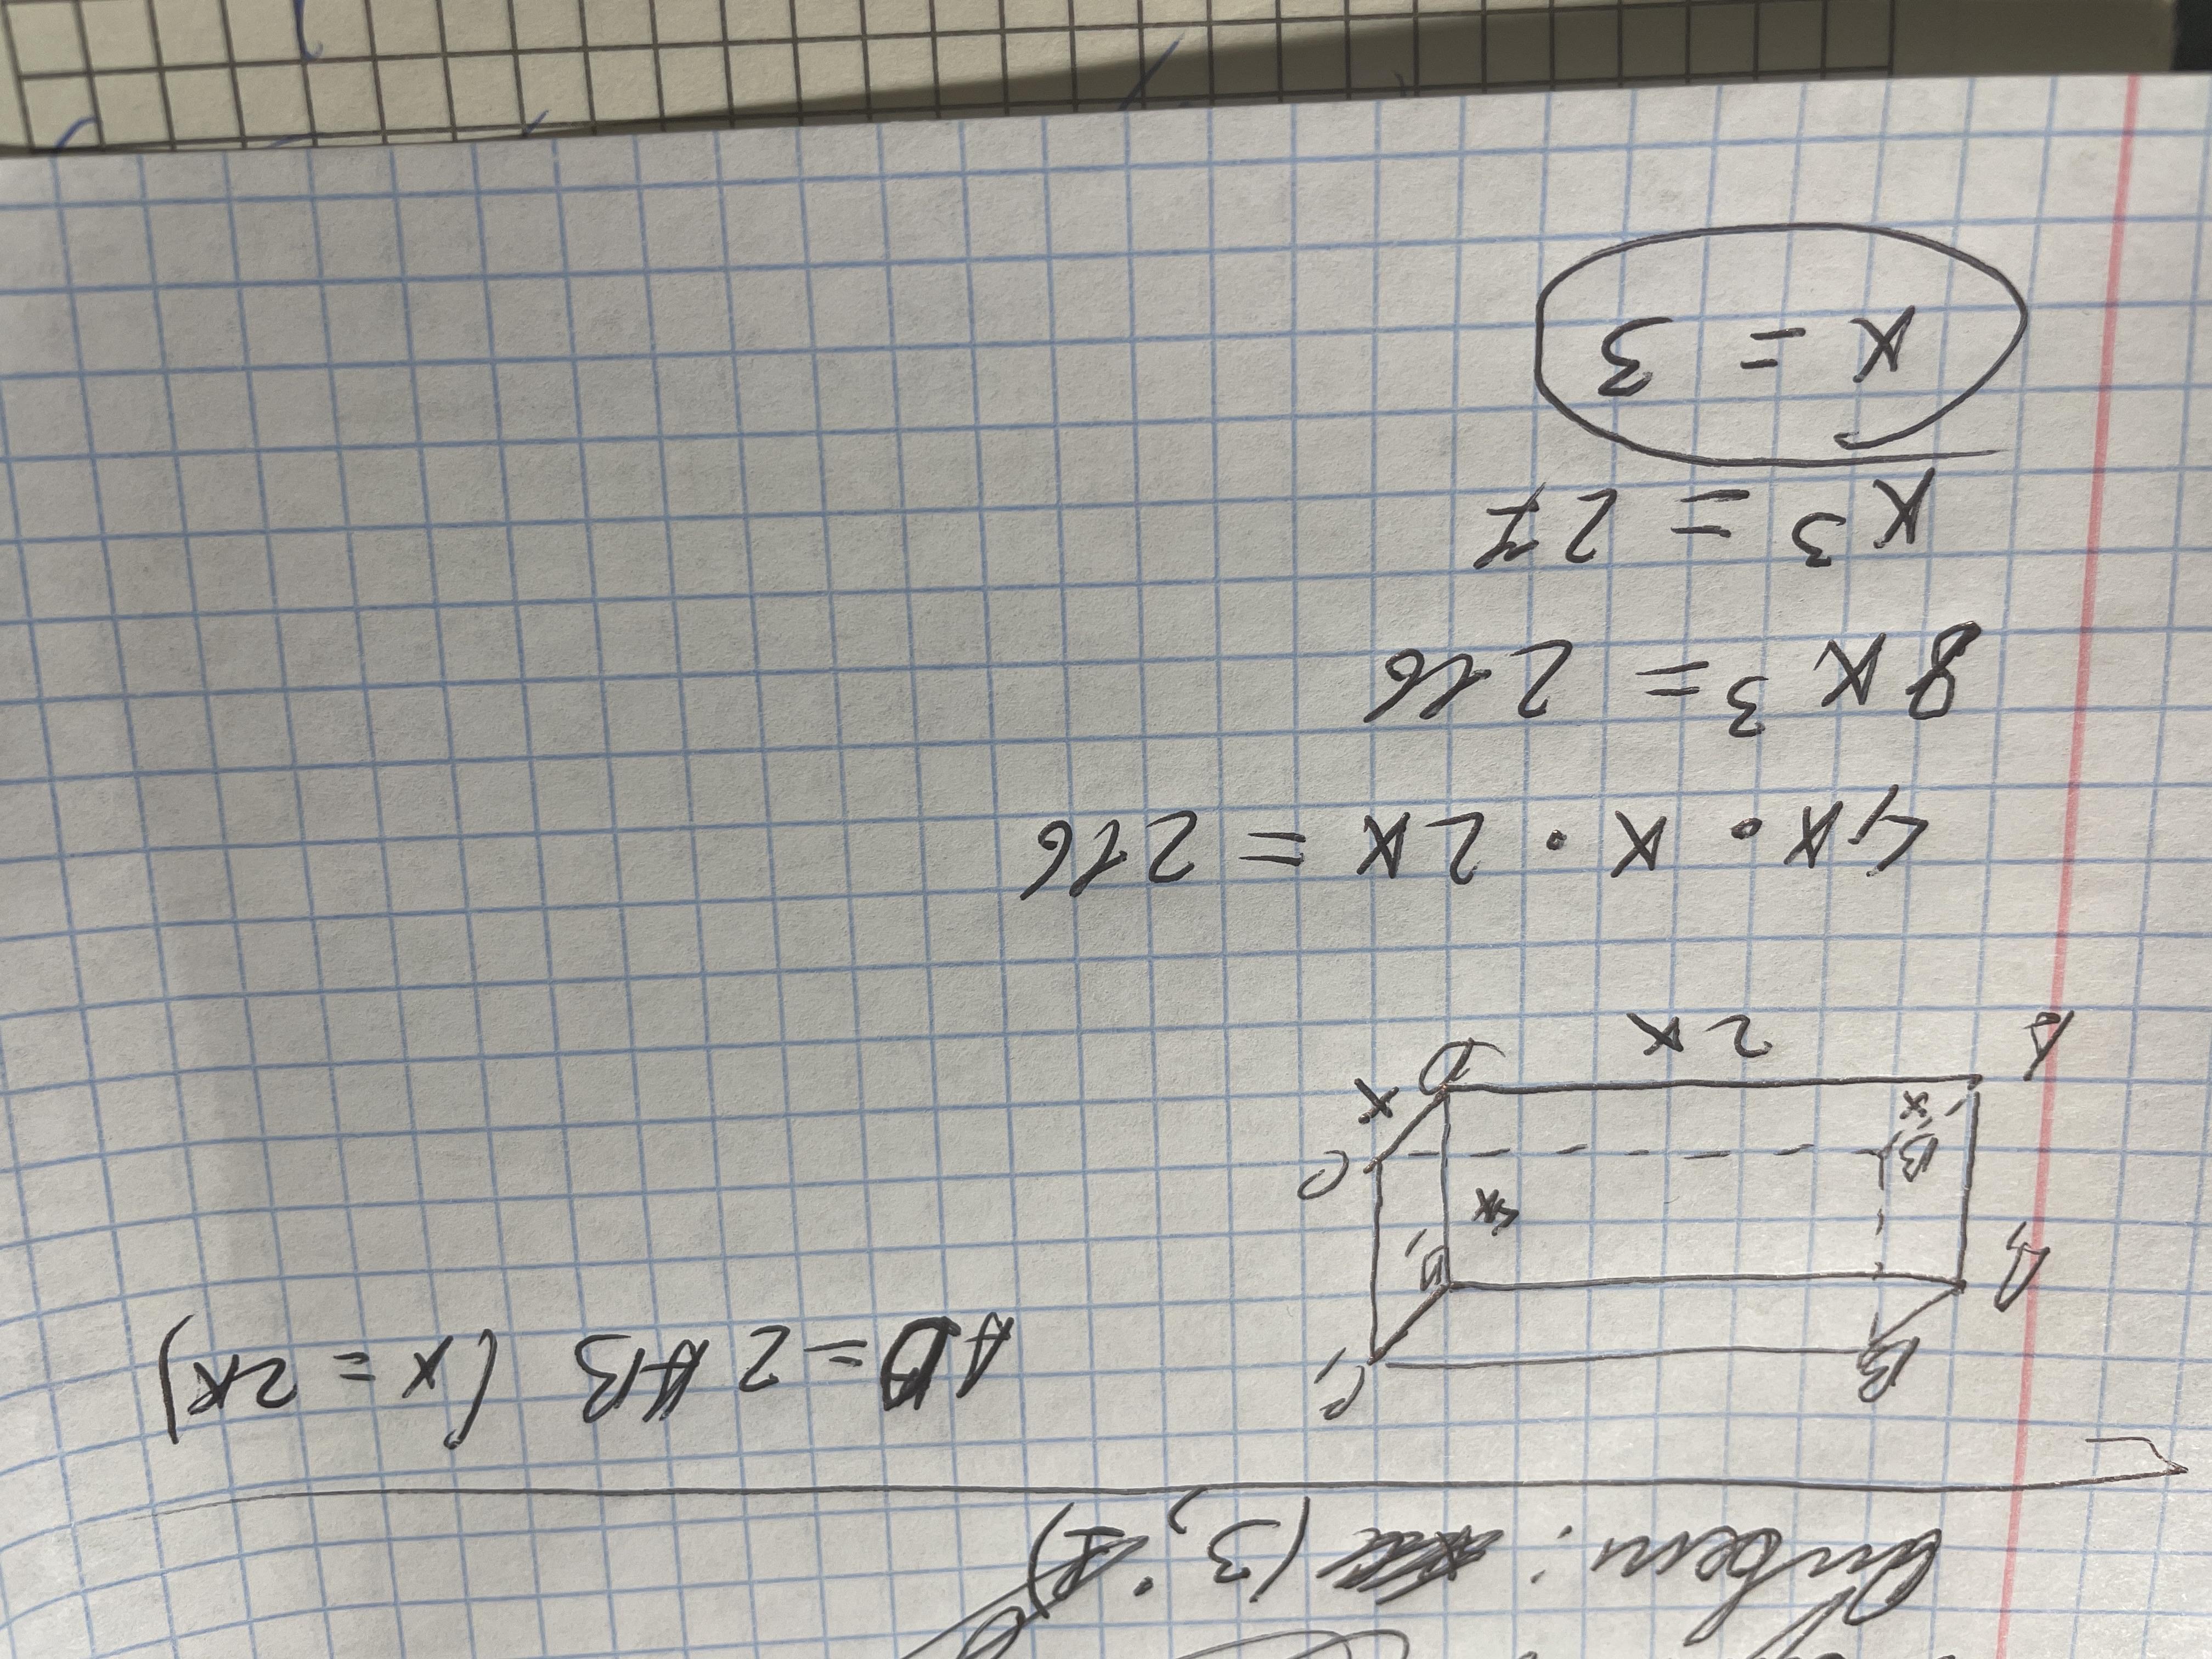 Ответ: (3; 1)
AD = 2AB (x = 2x)
B₁ C₁
A D₁
4x
B C
x x
A D
2x
4x · x · 2x = 216
8x³ = 216
x³ = 27
x = 3